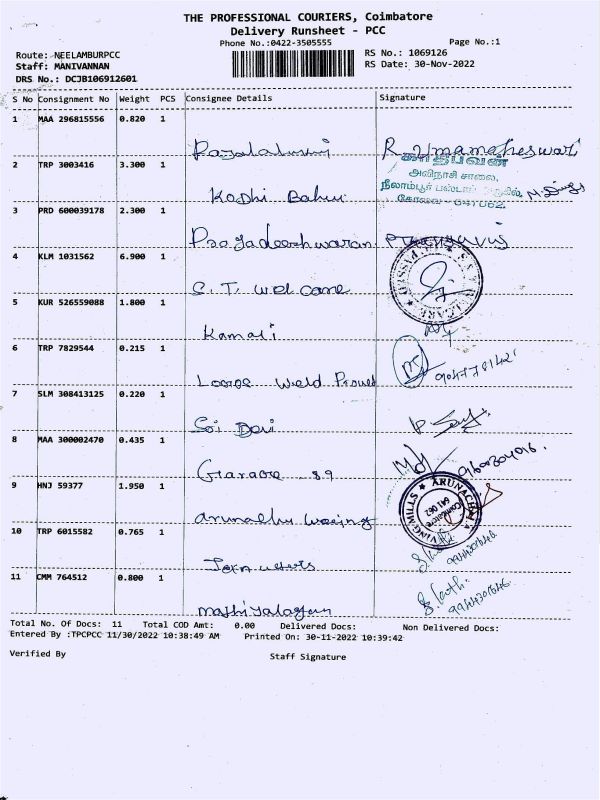 THE PROFESSIONAL COURIERS, Coimbatore
Delivery Runsheet - PCC
Phone No.:0422-3505555
Page No.:1
Route: NEELAMBURPCC
RS No.: 1069126
Staff: MANIVANNAN
RS Date: 30-Nov-2022
DRS No.: DCJB106912601
S No Consignment No Weight PCS Consignee Details Signature
1 MAA 296815556 0.820 1
R. Umamaheswari
2 TRP 3003416 3.300 1
அவிநாசி சாலை,
Kodhi Babu
கோவை - 641 062.
3 PRD 600039178 2.300 1
Pragadeeshwaran
4 KLM 1031562 6.900 1
S. T. welcome
5 KUR 526559088 1.800 1
Kamali
6 TRP 7829544 0.215 1
Weld
7 SLM 308413125 0.220 1
Sri Devi
8 MAA 300002470 0.435 1
89
9 HNJ 59377 1.950 1
ARUNACHALA
641 062
Coimbatore
10 TRP 6015582 0.765 1
11 CMM 764512 0.800 1
Total No. Of Docs: 11 Total COD Amt: 0.00 Delivered Docs: Non Delivered Docs:
Entered By :TPCPCC 11/30/2022 10:38:49 AM Printed On: 30-11-2022 10:39:42
Verified By Staff Signature